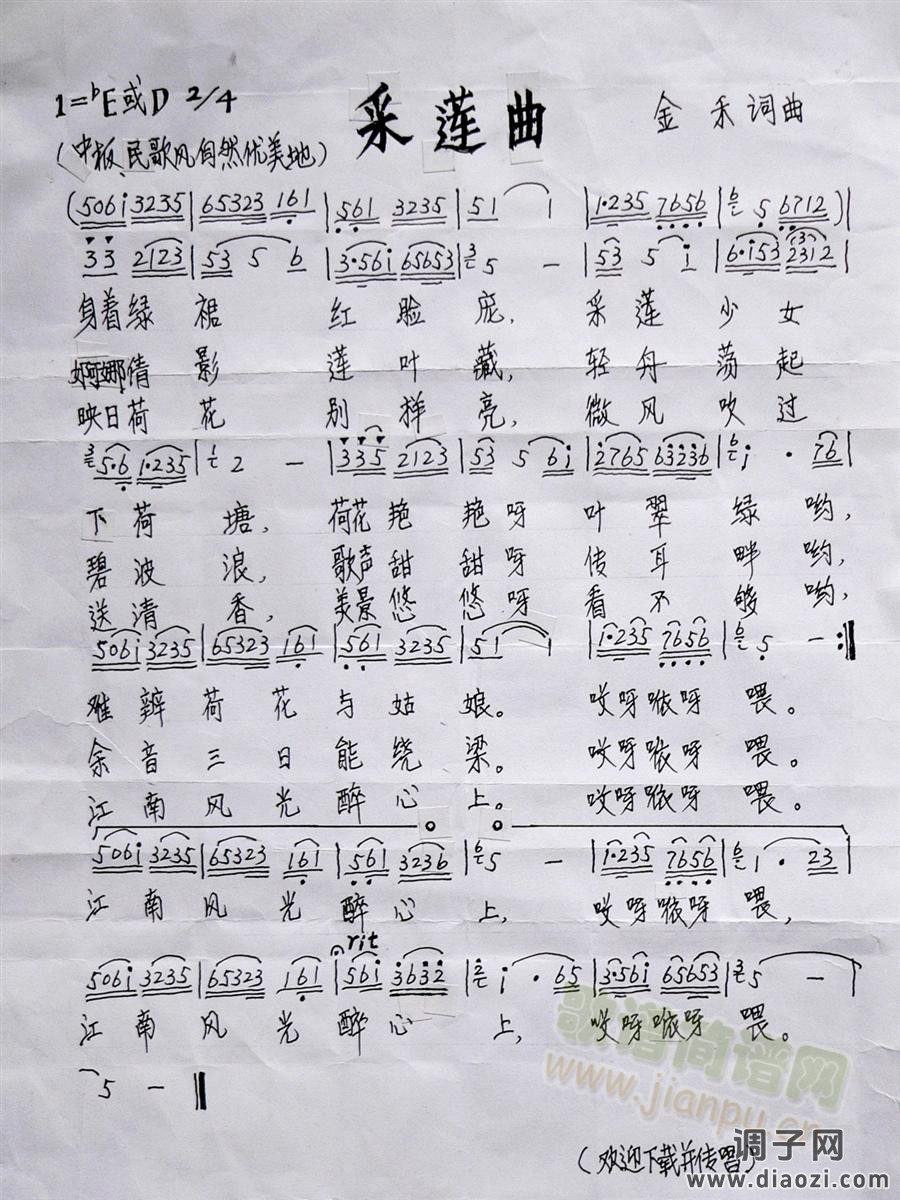 1=♭E或D 2/4
采莲曲
金禾词曲
(中板、民歌风自然优美地)
(506i 3235|65323 161|561 3235|51 1|1·235 7656|6 5 6712)|
33 2123|53 5 6|3·56i 65653|3 5 -|53 5 i|6·i53 2312|
身着绿裙 红脸庞, 采莲少女
婀娜倩影 莲叶藏, 轻舟荡起
映日荷花 别样亮, 微风吹过
3 5·6 1·235|1 2 -|335 2123|53 5 6i|2765 63236|6 i · 76|
下荷塘, 荷花艳艳呀 叶翠绿哟,
碧波浪, 歌声甜甜呀 传耳畔哟,
送清香, 美景悠悠呀 看不够哟,
506i 3235|65323 161|561 3235|51 1|1·235 7656|6 5 -:|
难辨荷花与姑娘。 哎呀咴呀喂。
余音三日能绕梁。 哎呀咴呀喂。
江南风光醉心上。 哎呀咴呀喂。
506i 3235|65323 161|561 3236|6 5 -|1·235 7656|6 1 · 23|
江南风光醉心上, 哎呀咴呀喂,
rit
506i 3235|65323 161|56i 3632|2 i · 65|3·56i 65653|3 5 -|
江南风光醉心上, 哎呀咴呀喂。
5 -
歌谱简谱网
www.jianpu.cn
(欢迎下载并传唱)
调子网
www.diaozi.com